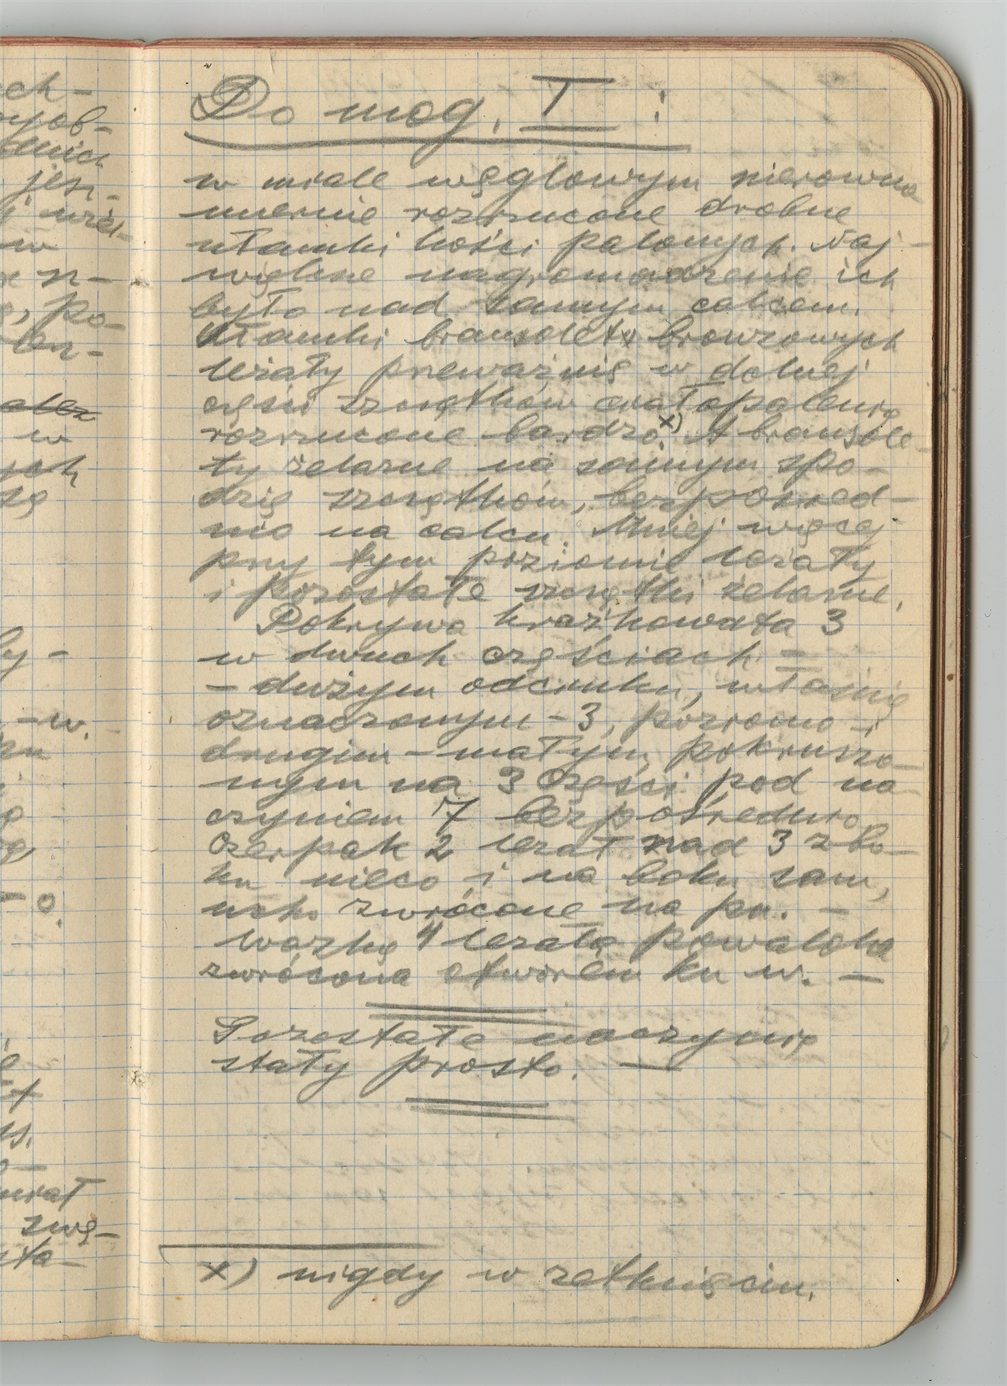 Do mog. I :
w miale węglowym nierówno
miernie rozrzucone drobne
ułamki kości palonych. Naj-
większe nagromadzenie ich
było nad samym calcem.
Ułamki bransolet brownzowych
leżały przeważnie w dolnej
części szczątków ciałopalenia
rozrzucone bardzo x). A bransole-
ty żelazne na samym spo-
dzie szczątków, bezpośred-
nio na calcu. Mniej więcej
przy tym poziomie leżały
i pozostałe szczątki żelazne.
Pokrywa krążkowata 3
w dwuch częściach –
– dużym odcinku, właśnie
oznaczonym – 3, poziomo i
drugim – małym, pokruszo-
nym na 3 części pod na-
czyniem 7 bezpośrednio.
Czerpak 2 leżał nad 3 z bo-
ku nieco i na boku sam,
ucho zwrócone na pn. –
Wazka 4 leżała powalona
zwrócona otworem ku w. –
Pozostałe naczynia
stały prosto. –
x) nigdy w zetknięciu.
ch-
jes-
w
n-
po-
w
by-
-w.
-o.
zwę-